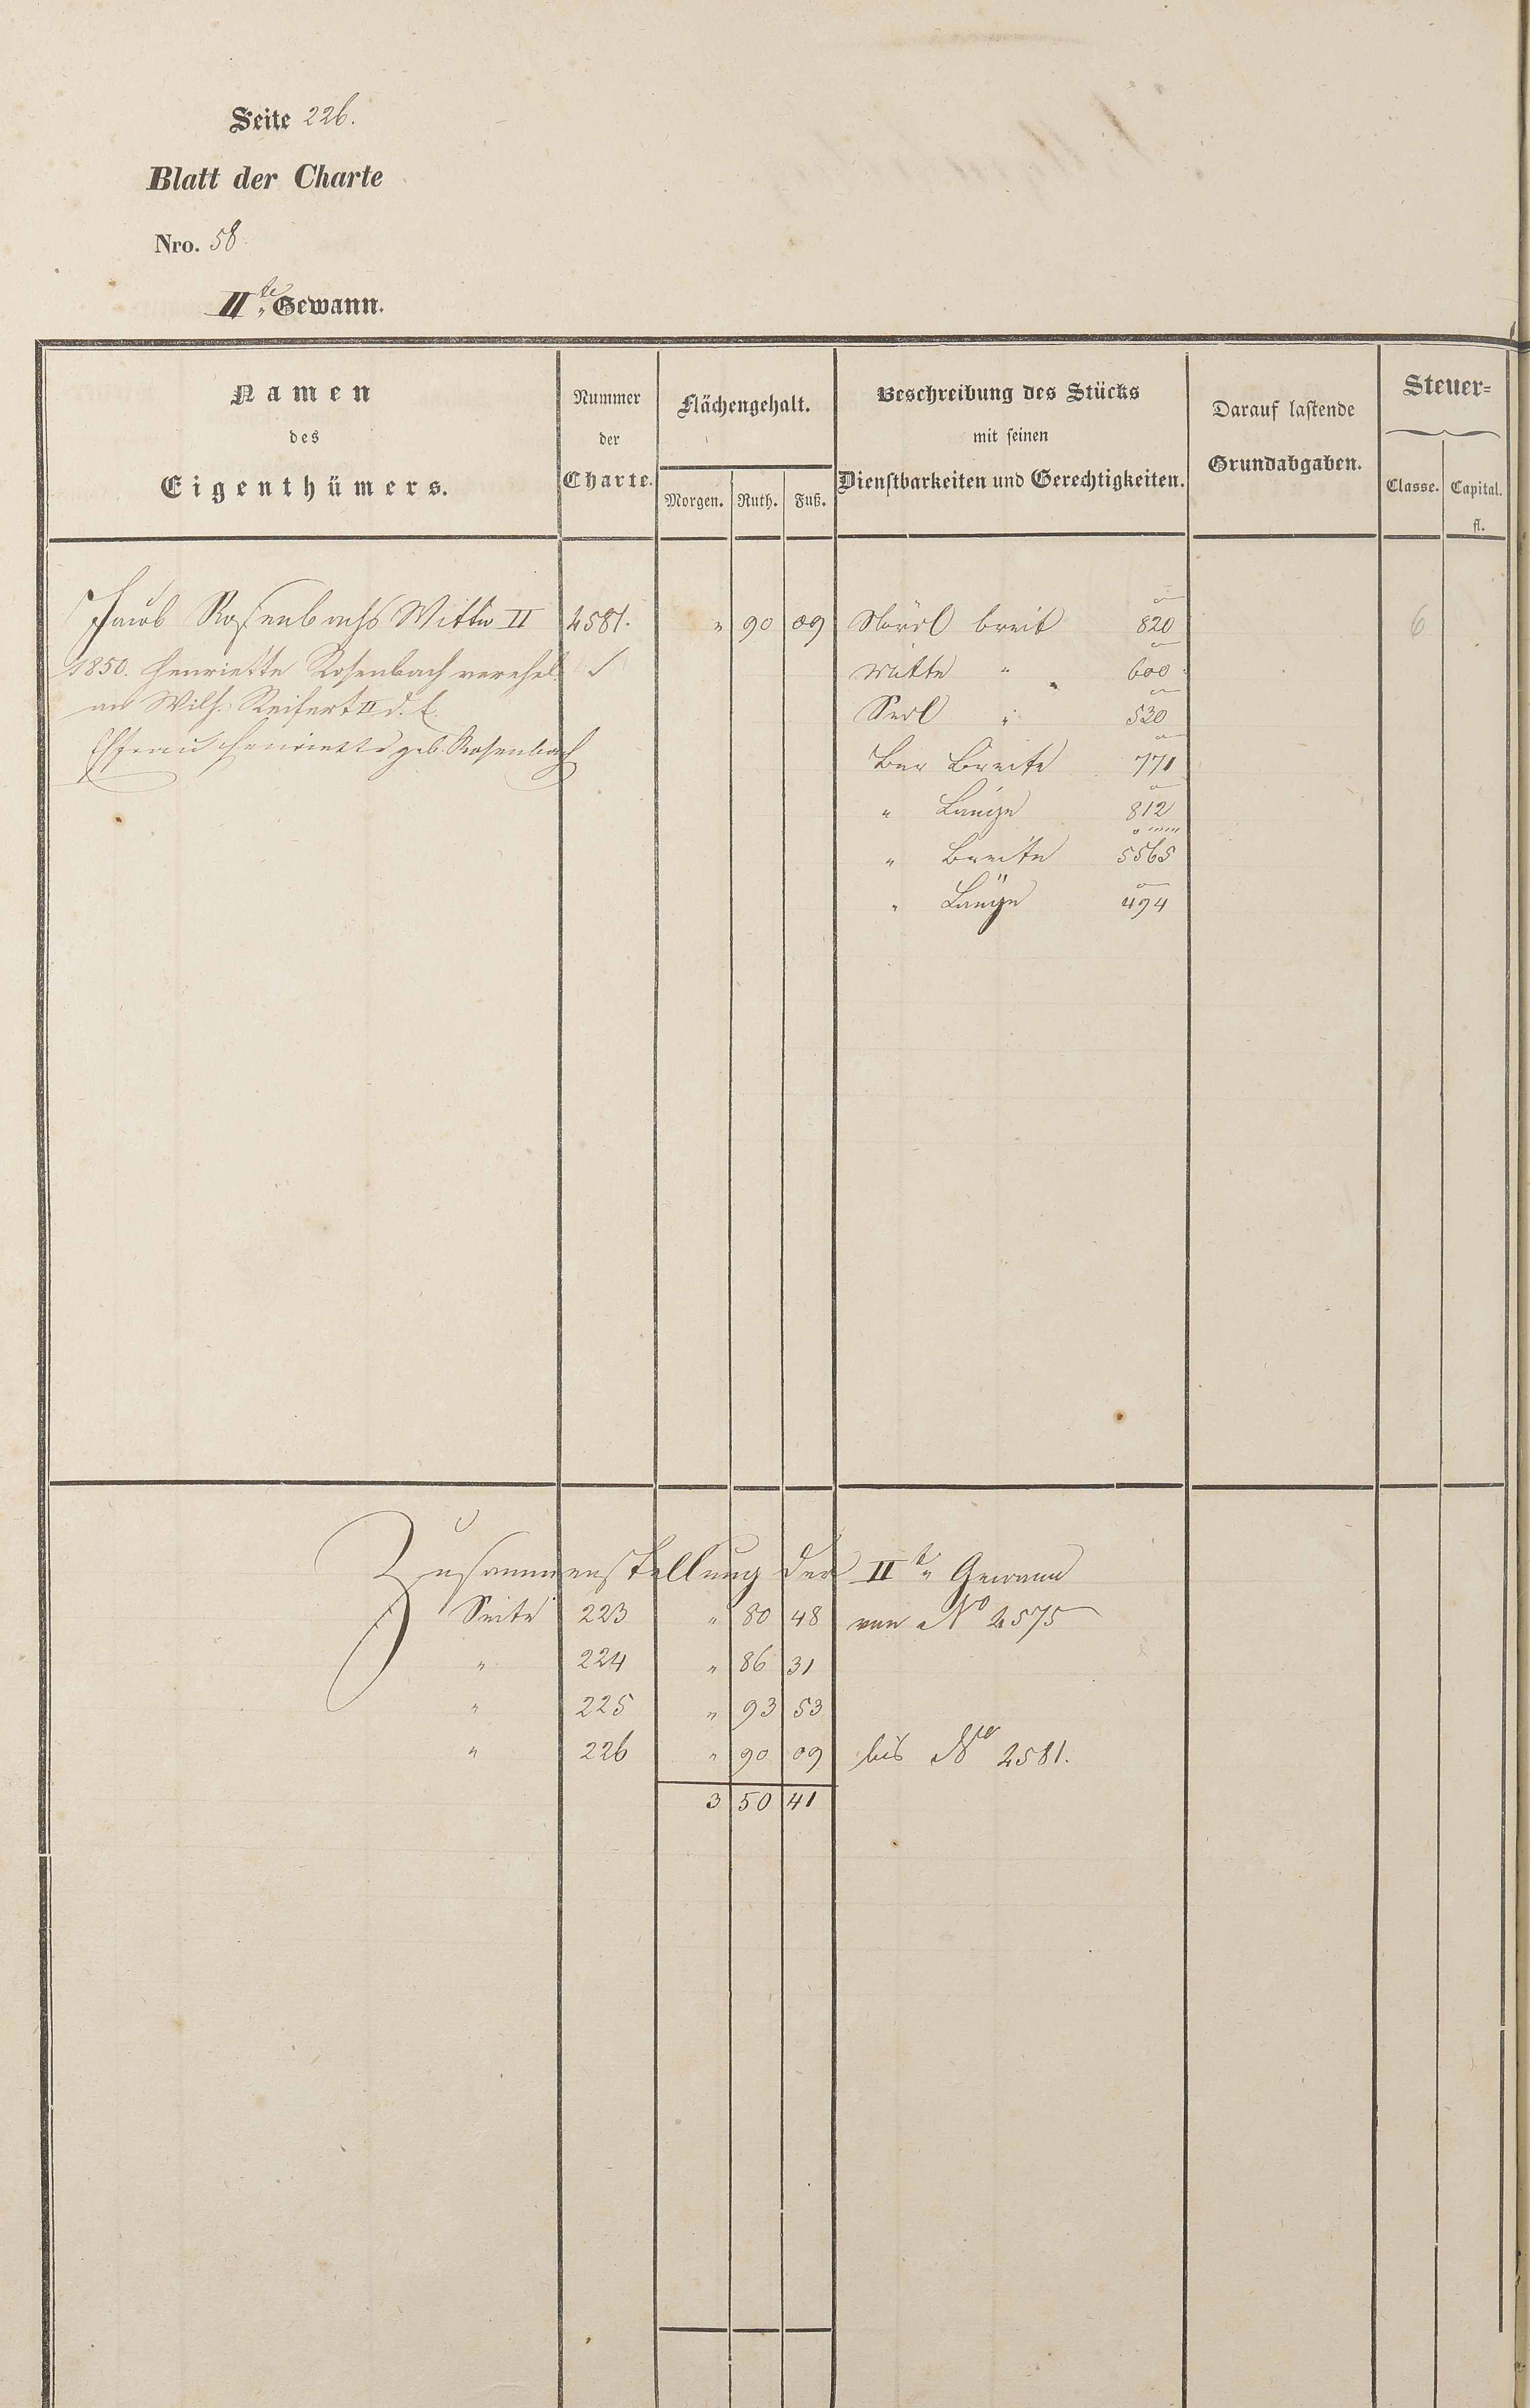 Seite 226.
Blatt der Charte
Nro. 58
II te Gewann.
Namen des Eigenthümers.
Nummer der Charte.
Flächengehalt.
Morgen. Ruth. Fuß.
Beschreibung des Stücks mit seinen Dienstbarkeiten und Gerechtigkeiten.
Darauf lastende Grundabgaben.
Steuer=
Classe. Capital. fl.
Jacob Rosenbachs Wittw II 2581. " 90 09 Nördl breit 820 6
1850. Henriette Rosenbach verehel. Mitte " 600
an Wilh. Reifert II d. E. Südl " 530
Ehfrau Henriette geb. Rosenbach
Ber Breite 771
" Länge 812
" Breite 5565
" Länge 494
Zusammenstellung der II te Gewann
Seite 223 " 80 48 von No 2575
" 224 " 86 31
" 225 " 93 53
" 226 " 90 09 bis Nro 2581.
3 50 41